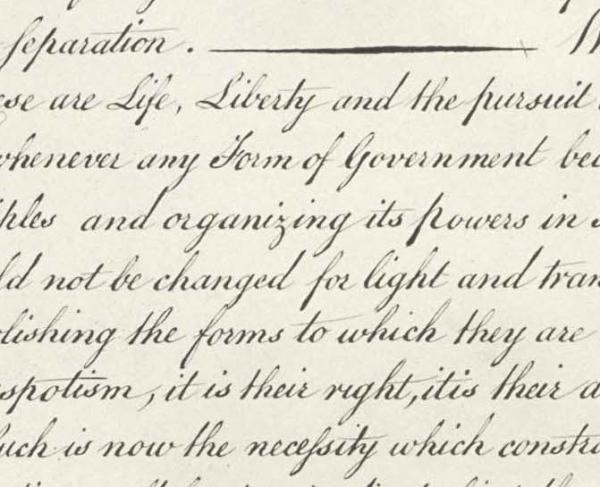 separation . ———— W
ese are Life, Liberty and the pursuit
whenever any Form of Government bec
iples and organizing its powers in s
ld not be changed for light and tran
lishing the forms to which they are
spotism, it is their right, it is their d
uch is now the neceſsity which constra